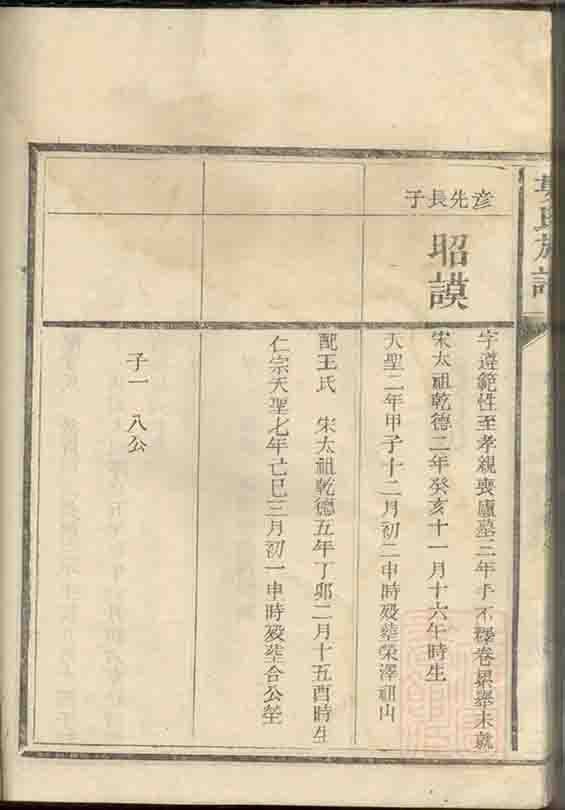 氏族譜
彦先長子
昭謨
字遵範性至孝親喪廬墓三年手不釋卷累舉未就
宋太祖乾德二年癸亥十一月十六午時生
天聖二年甲子十二月初二申時殁塟榮澤祖山
配王氏　宋太祖乾德五年丁卯二月十五酉時生
仁宗天聖七年己巳三月初一申時殁塟合公塋
子一　八公